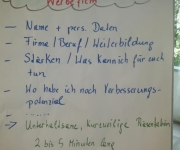 Werbefilm
- Name + pers. Daten
- Firma / Beruf / Weiterbildung
- Stärken / Was kann ich für euch
tun
- Wo habe ich noch Verbesserungs-
potenzial
- .....
-> Unterhaltsame, kurzweilige Präsentation
2 bis 5 Minuten lang